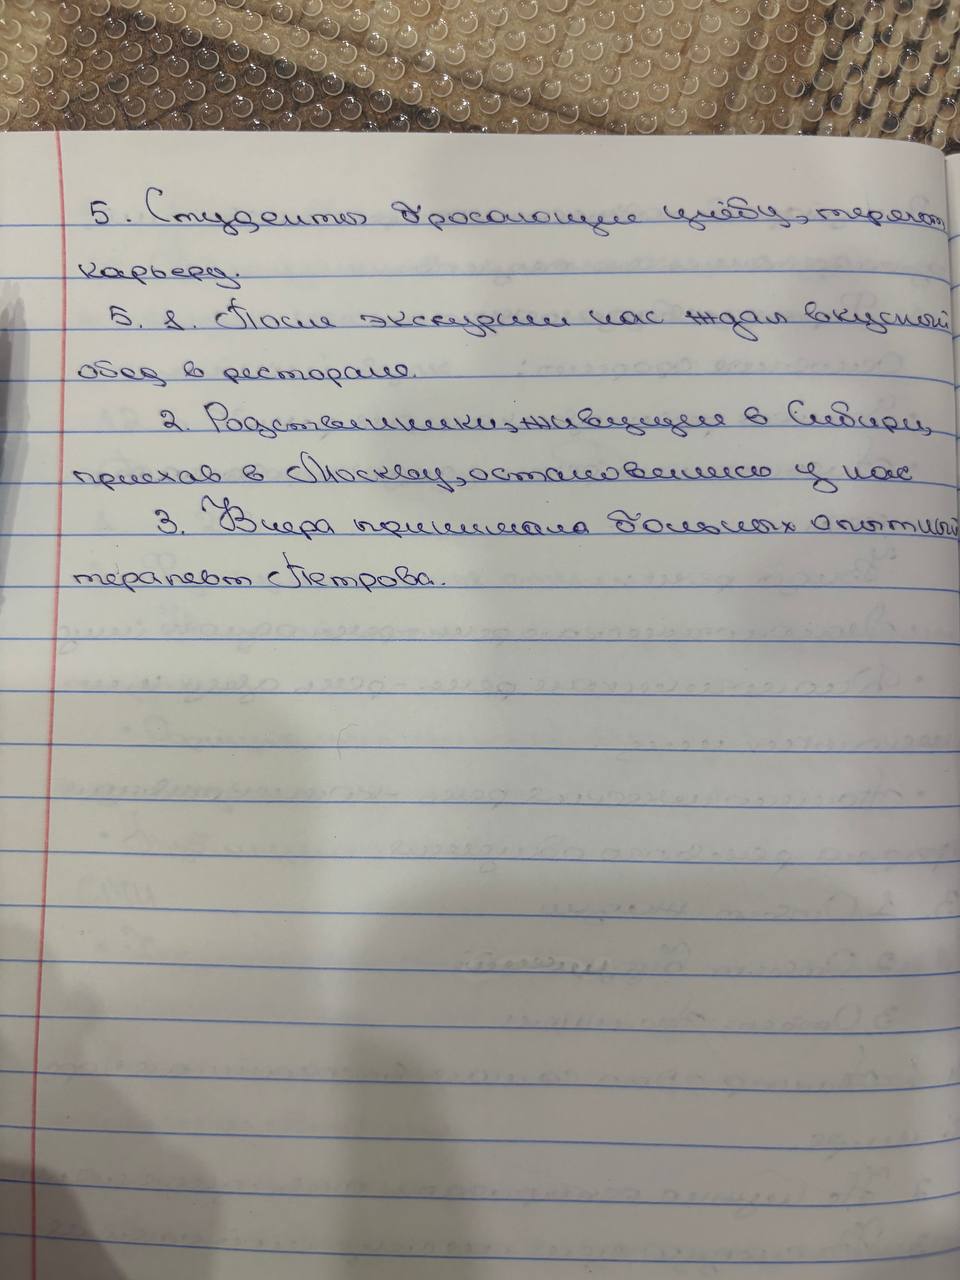 5. Студенты бросающие учёбу, теряют
карьеру.
5. 1. После экскурсии нас ждал вкусный
обед в ресторане.
2. Родственники, живущие в Сибири,
приехав в Москву, остановились у нас
3. Вчера принимала больных опытный
терапевт Петрова.